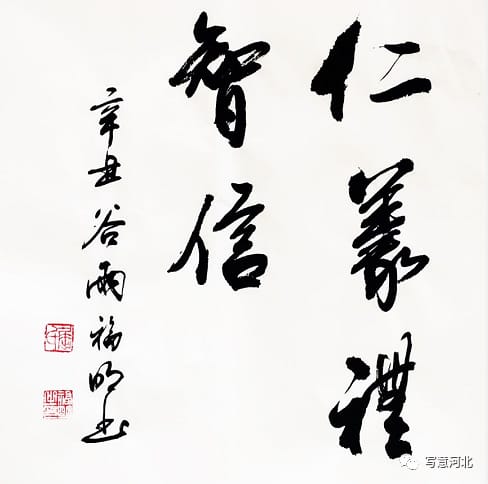 仁義禮
智信
辛丑谷雨福明书
写意河北